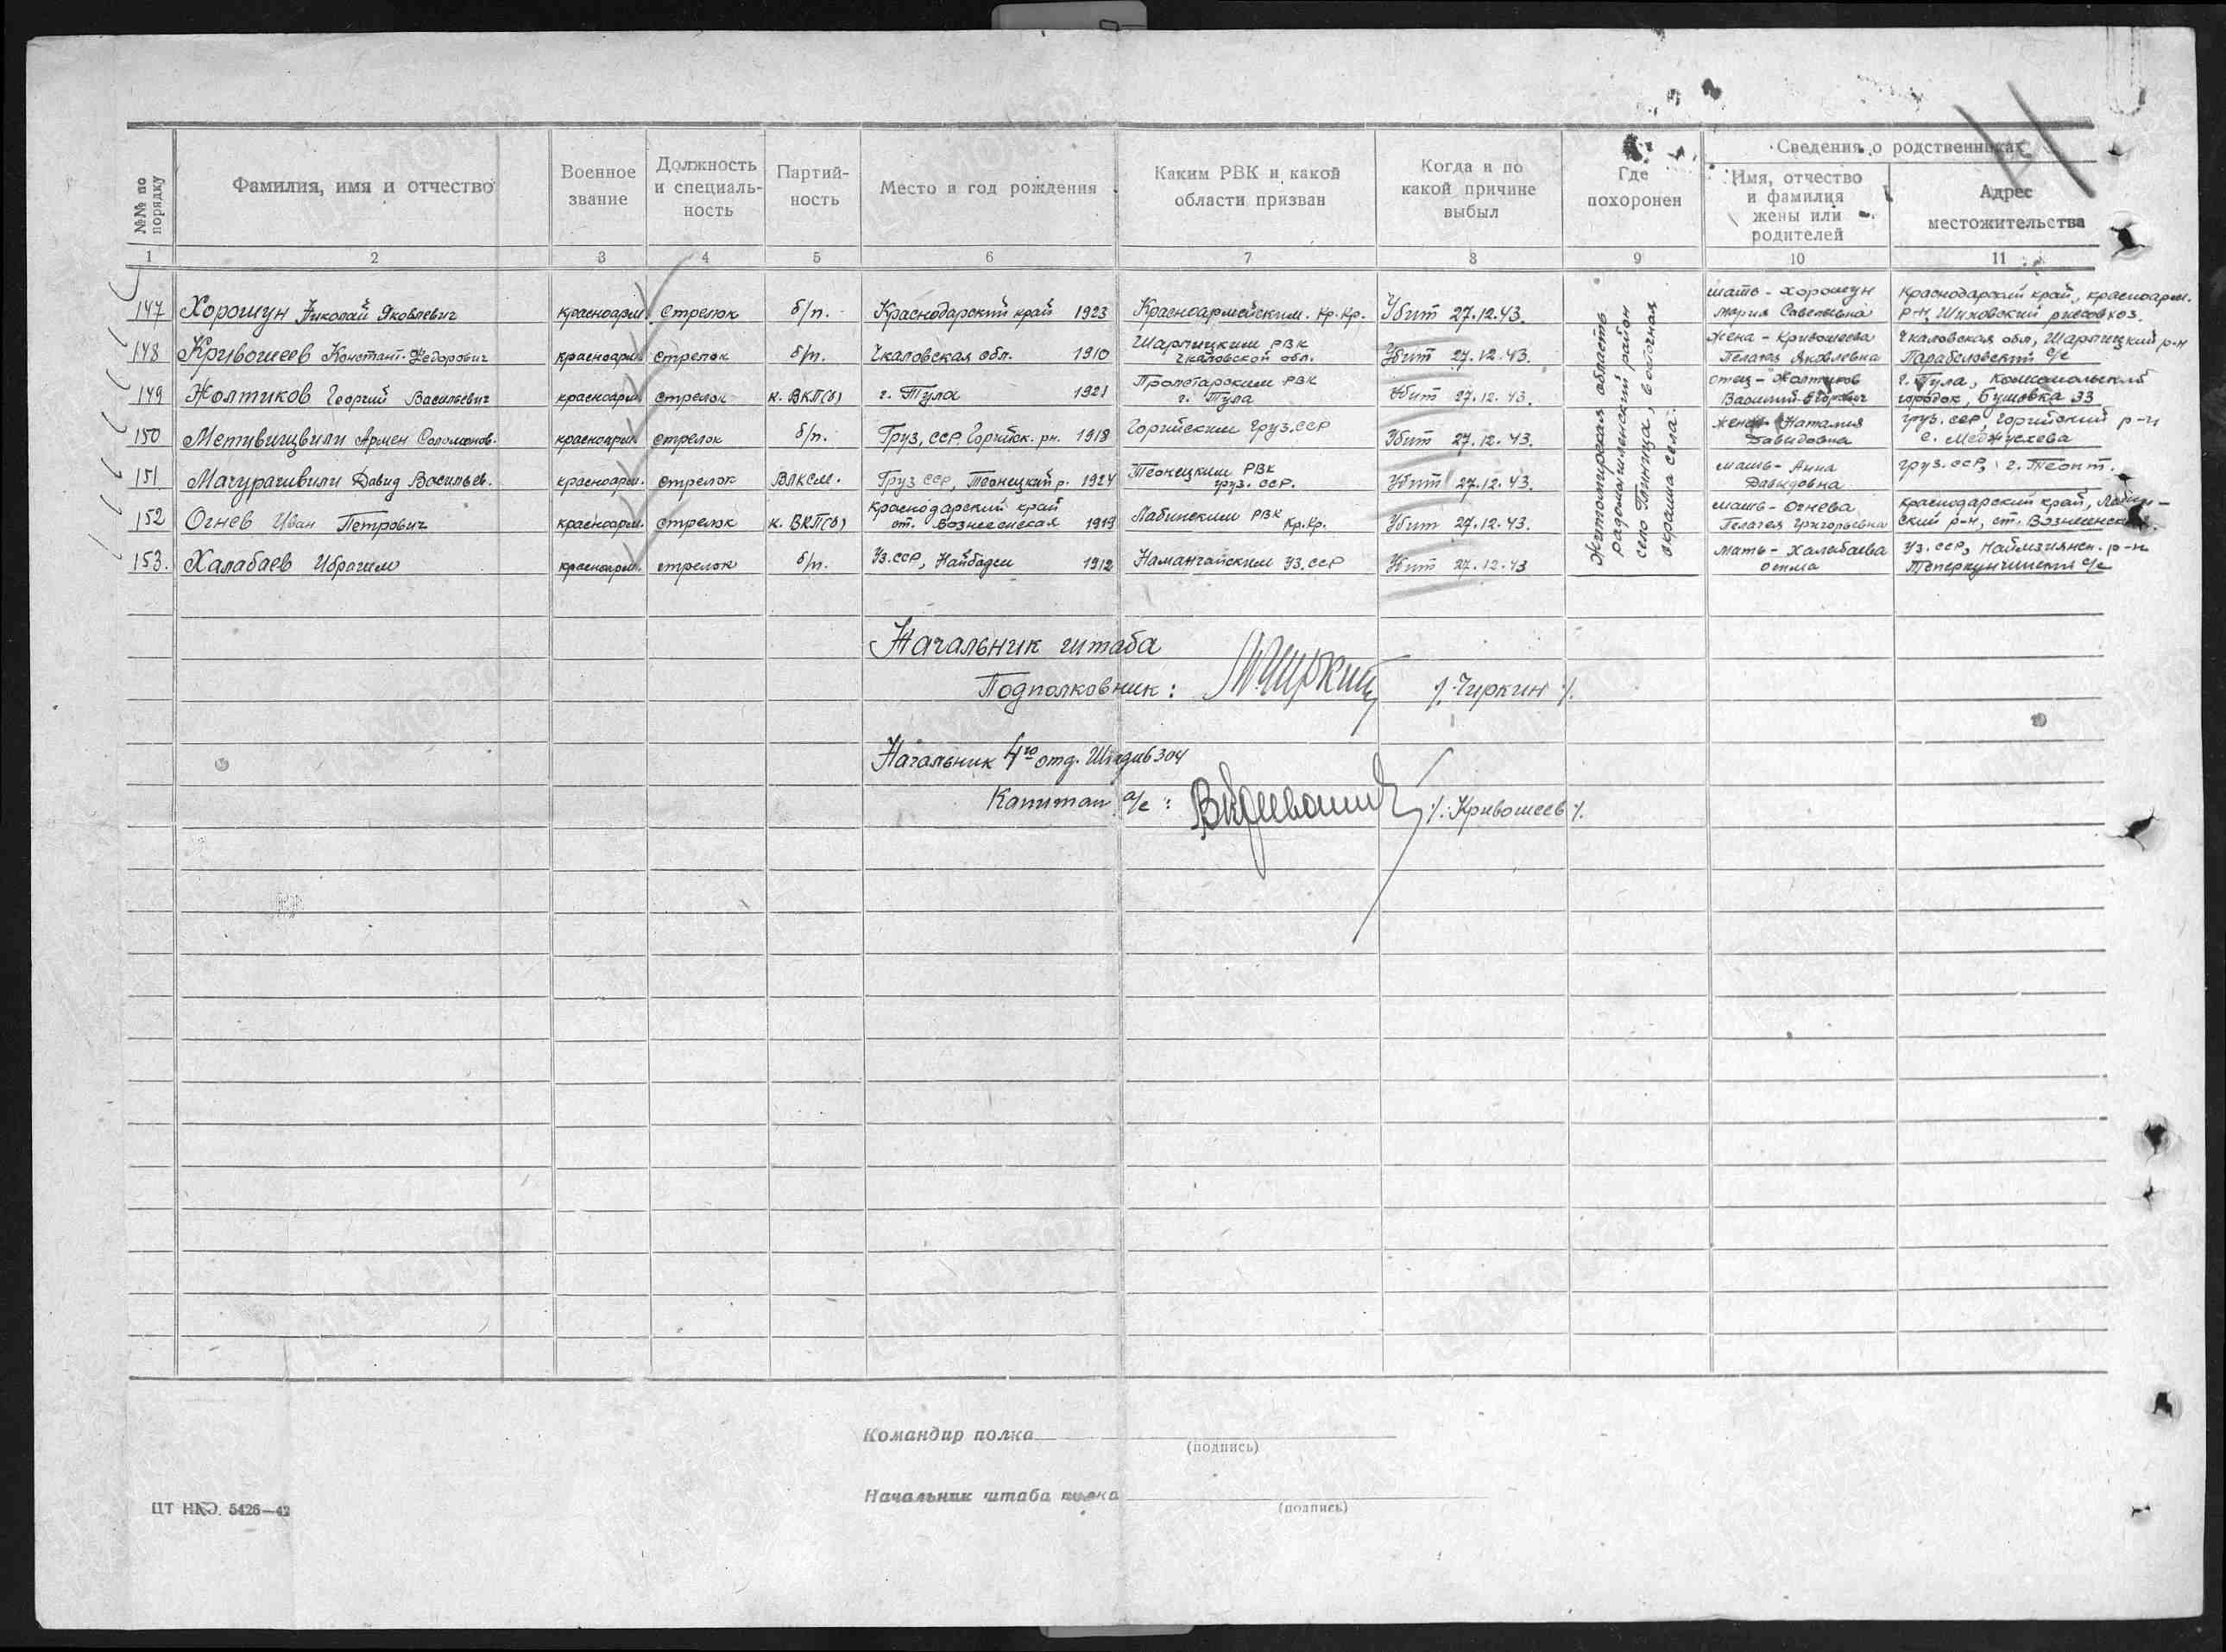 №№ по порядку
Фамилия, имя и отчество
Военное звание
Должность и специаль-ность
Партий-ность
Место и год рождения
Каким РВК и какой области призван
Когда и по какой причине выбыл
Где похоронен
Сведения о родственниках
Имя, отчество и фамилия жены или родителей
Адрес местожительства
1 2 3 4 5 6 7 8 9 10 11
147 Хорошун Николай Яковлевич красноарм. Стрелок б/п. Краснодарский край 1923 Красноармейским. Кр.Кр. Убит 27.12.43. мать - Хорошун Мария Савельевна Краснодарский край, красноарм. р-н, Шиховский рисовхоз.
148 Кривошеев Констант. Федорович красноарм. стрелок б/п. Чкаловская обл. 1910 Шарлицким РВК Чкаловской обл. Убит 27.12.43. жена - Кривошеева Пелагея Яковлевна Чкаловская обл, Шарлицкий р-н с/с
149 Жолтиков Георгий Васильевич красноарм. стрелок к. ВКП(б) г. Тула 1921 Пролетарским РВК г. Тула Убит 27.12.43. отец - Жолтиков Василий Егорович г. Тула, Комсомольский городок, 33
150 Метивишвили Армен Соломонов. красноарм. стрелок б/п. Груз, ССР. Горийск. рн. 1918 Горийским Груз.ССР Убит 27.12.43. жена - Наталия Давидовна Груз. ССР, Горийский р-н с. Меджусхева
151 Мачурашвили Давид Васильев. красноарм. стрелок ВЛКСМ. Груз ССР, Теонецкий р. 1924 Теонецким РВК Груз. ССР. Убит 27.12.43. мать - Анна Давыдовна Груз. ССР, г. Теонет.
152 Огнев Иван Петрович красноарм. стрелок к. ВКП(б) Краснодарский край ст. Вознесенская 1919 Лабинским РВК Кр.Кр. Убит 27.12.43. мать - Огнева Пелагея Григорьевна Краснодарский край, Лабин-ский р-н, ст.
153. Халабаев Ибрагим красноарм. стрелок б/п. Уз.ССР, 1912 Наманганским Уз.ССР Убит 27.12.43 мать - Халабаева Уз. ССР, р-н с/с
Житомирская область
радомышленский район
село Пиница, восточная
окраина села.
Начальник штаба
Подполковник: /.Чиркин/.
Начальник 4го отд. Штадив 304
Капитан а/с: /.Кривошеев/.
Командир полка
(подпись)
Начальник штаба полка
(подпись)
ЦТ НКО. 5426—42